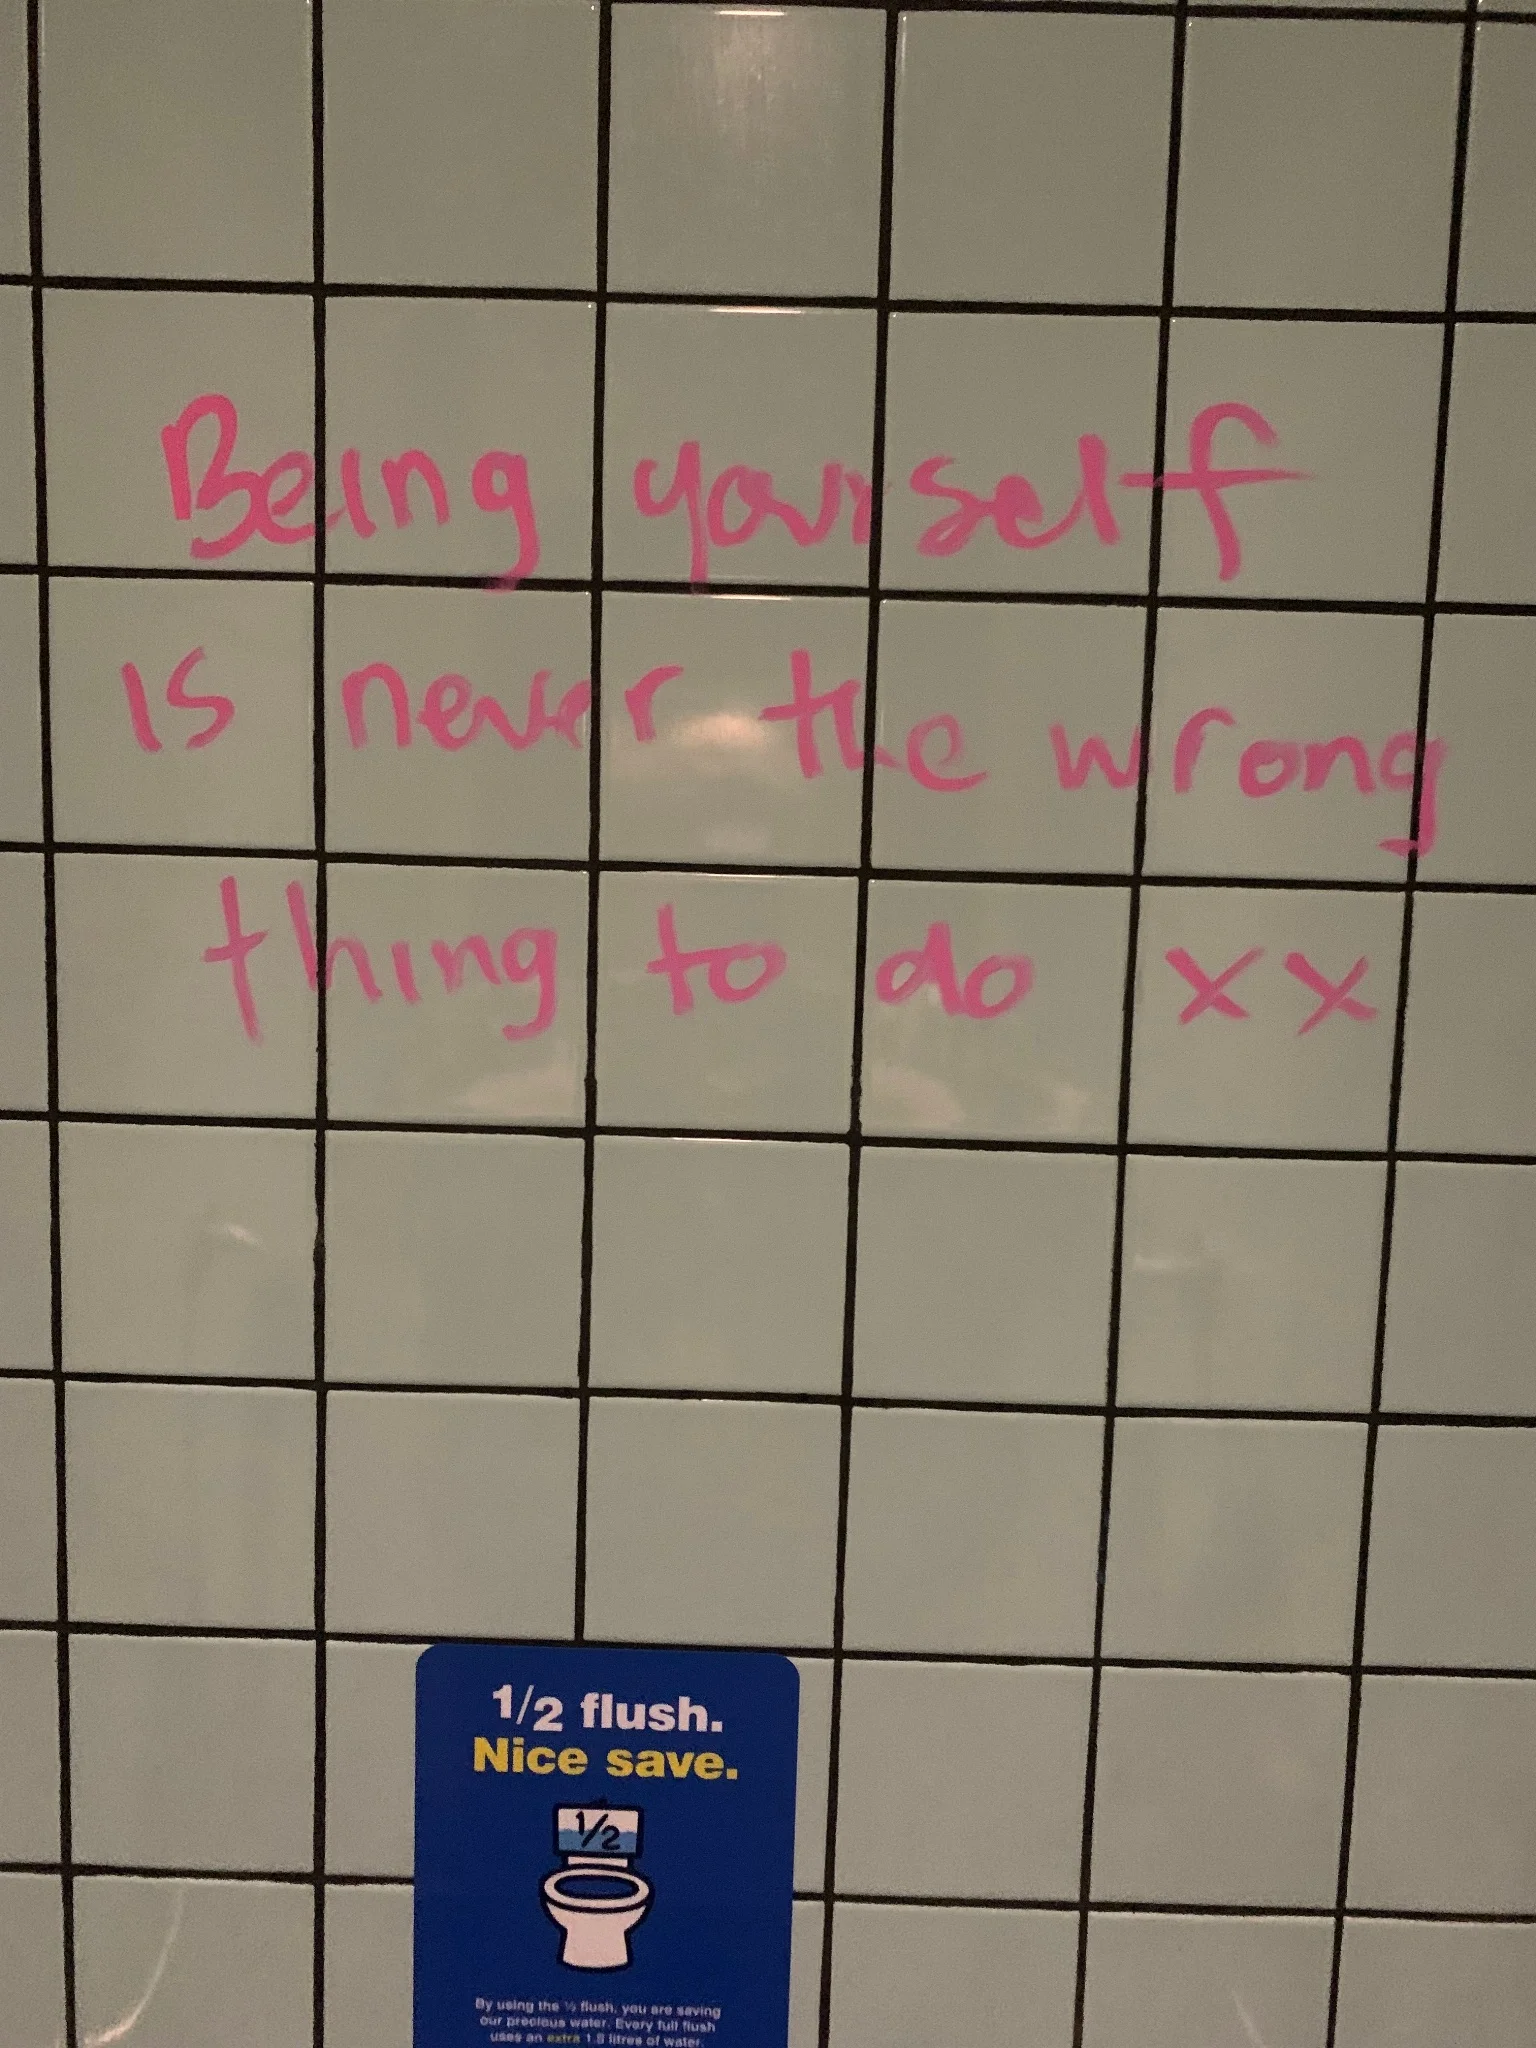 Being yourself
is never the wrong
thing to do xx
1/2 flush.
Nice save.
1/2
By using the ½ flush, you are saving
our precious water. Every full flush
uses an extra 1.5 litres of water.